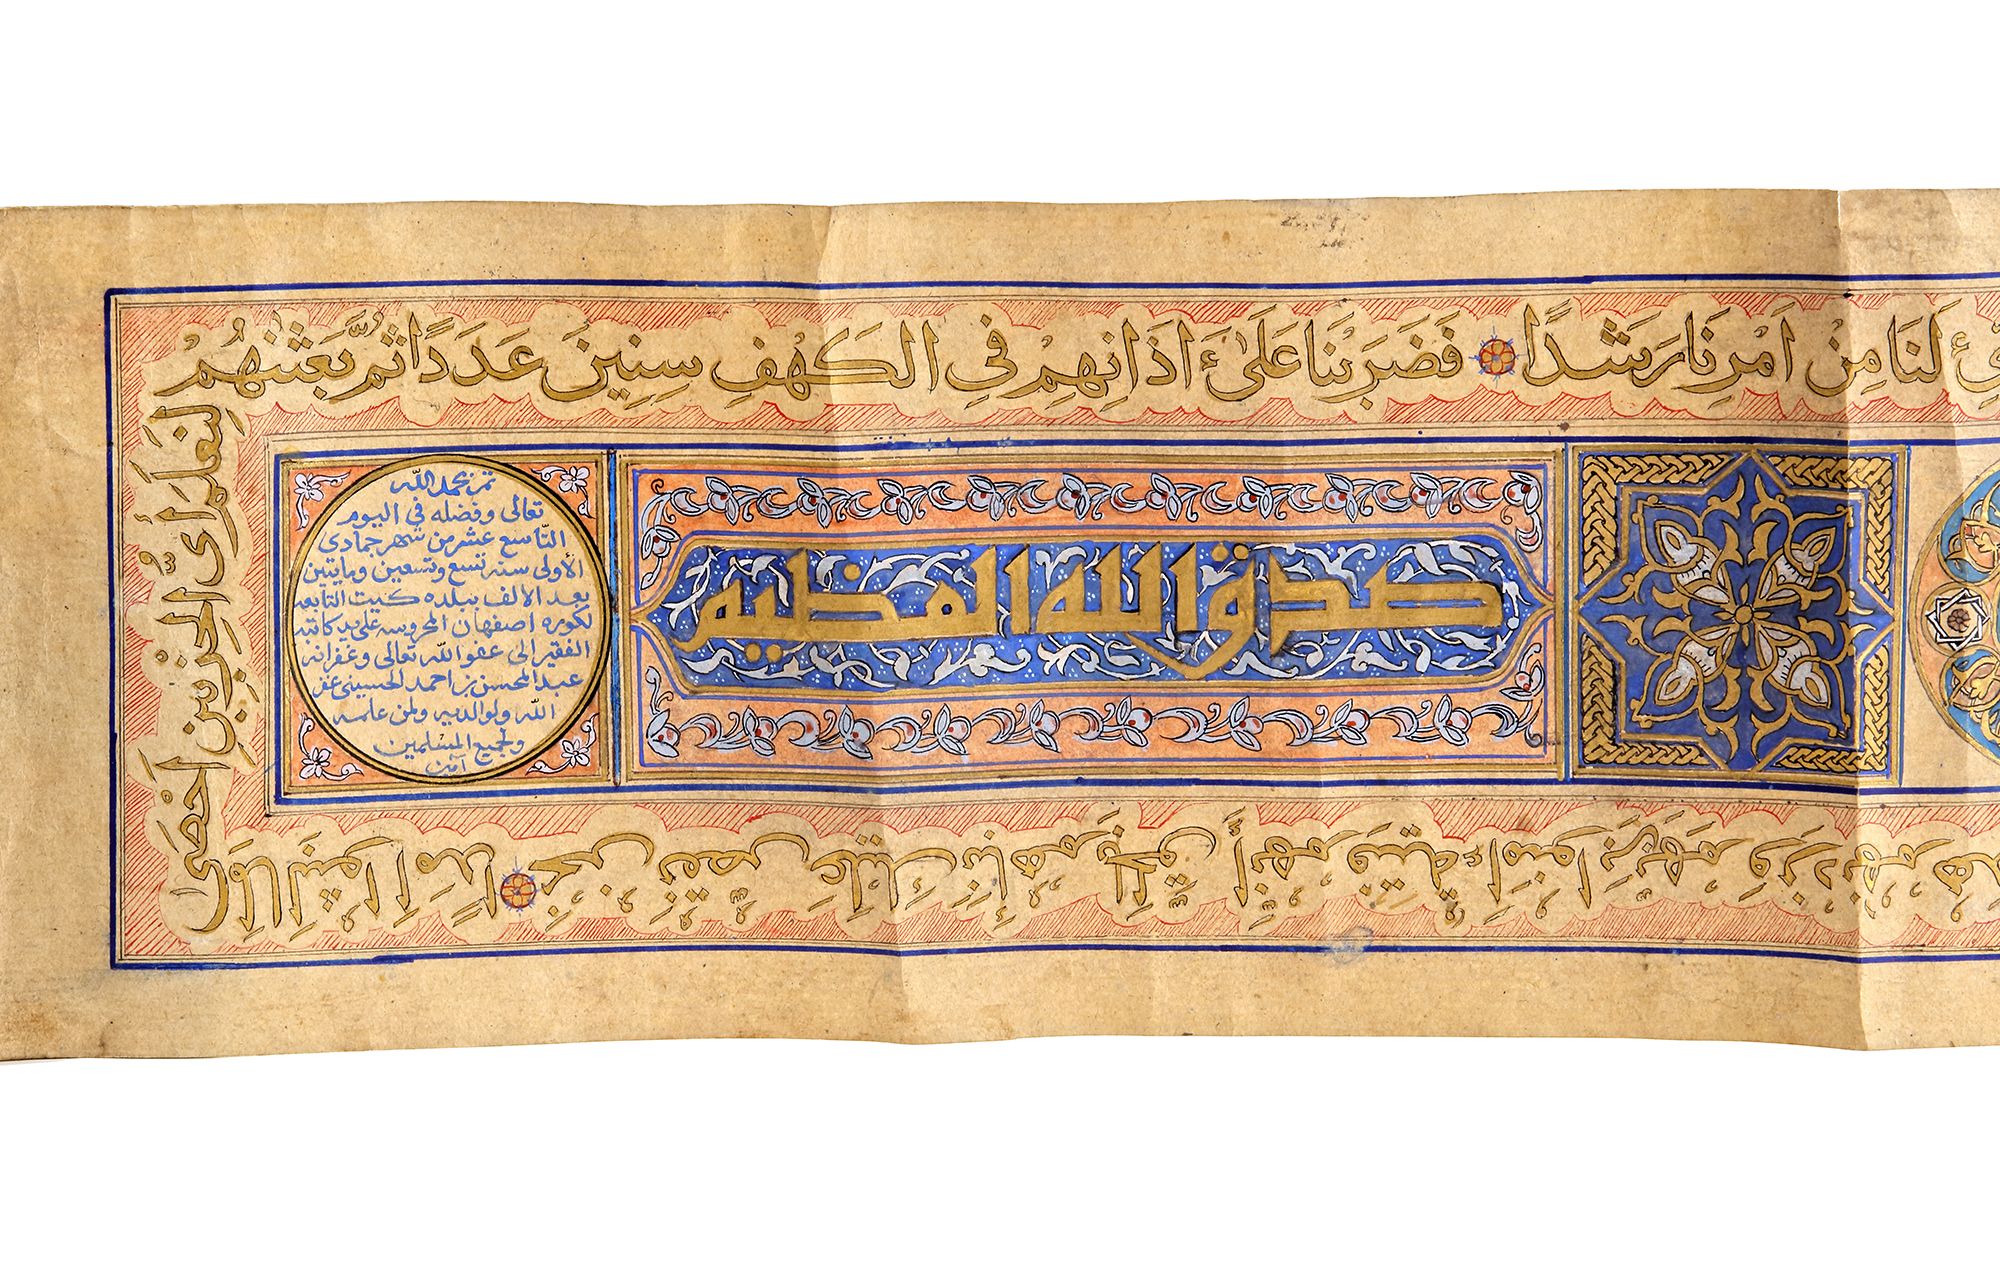 ئ لنا من امرنا رشدا فضربنا على ءاذانهم في الكهف سنين عددا ثم بعثنهم
لنعلم أي الحزبين احصى
لما لبثوا امدا نحن نقص عليك نبأهم بالحق إنهم فتية ءامنوا بربهم وزدنهم هدى
صدق الله العظيم
تم بحمد الله
تعالى وفضله في اليوم
التاسع عشر من شهر جمادي
الأولى سنه تسع وتسعين ومايتين
بعد الالف ببلده كيت التابعه
لكوره اصفهان المحروسه على يد كاتبه
الفقير الى عفو الله تعالى وغفرانه
عبد المحسن بن احمد الحسيني غفر
الله ولوالديه ولمن علمه
ولجميع المسلمين
آمين